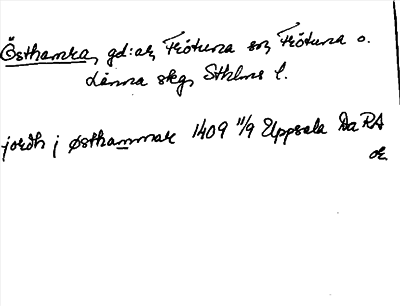 Östhamra, gd:ar, Frötuna sn, Frötuna o.
Länna skg, Sthlms l.
jordh j østhammar 1409 11/9 Uppsala Da RA
or.